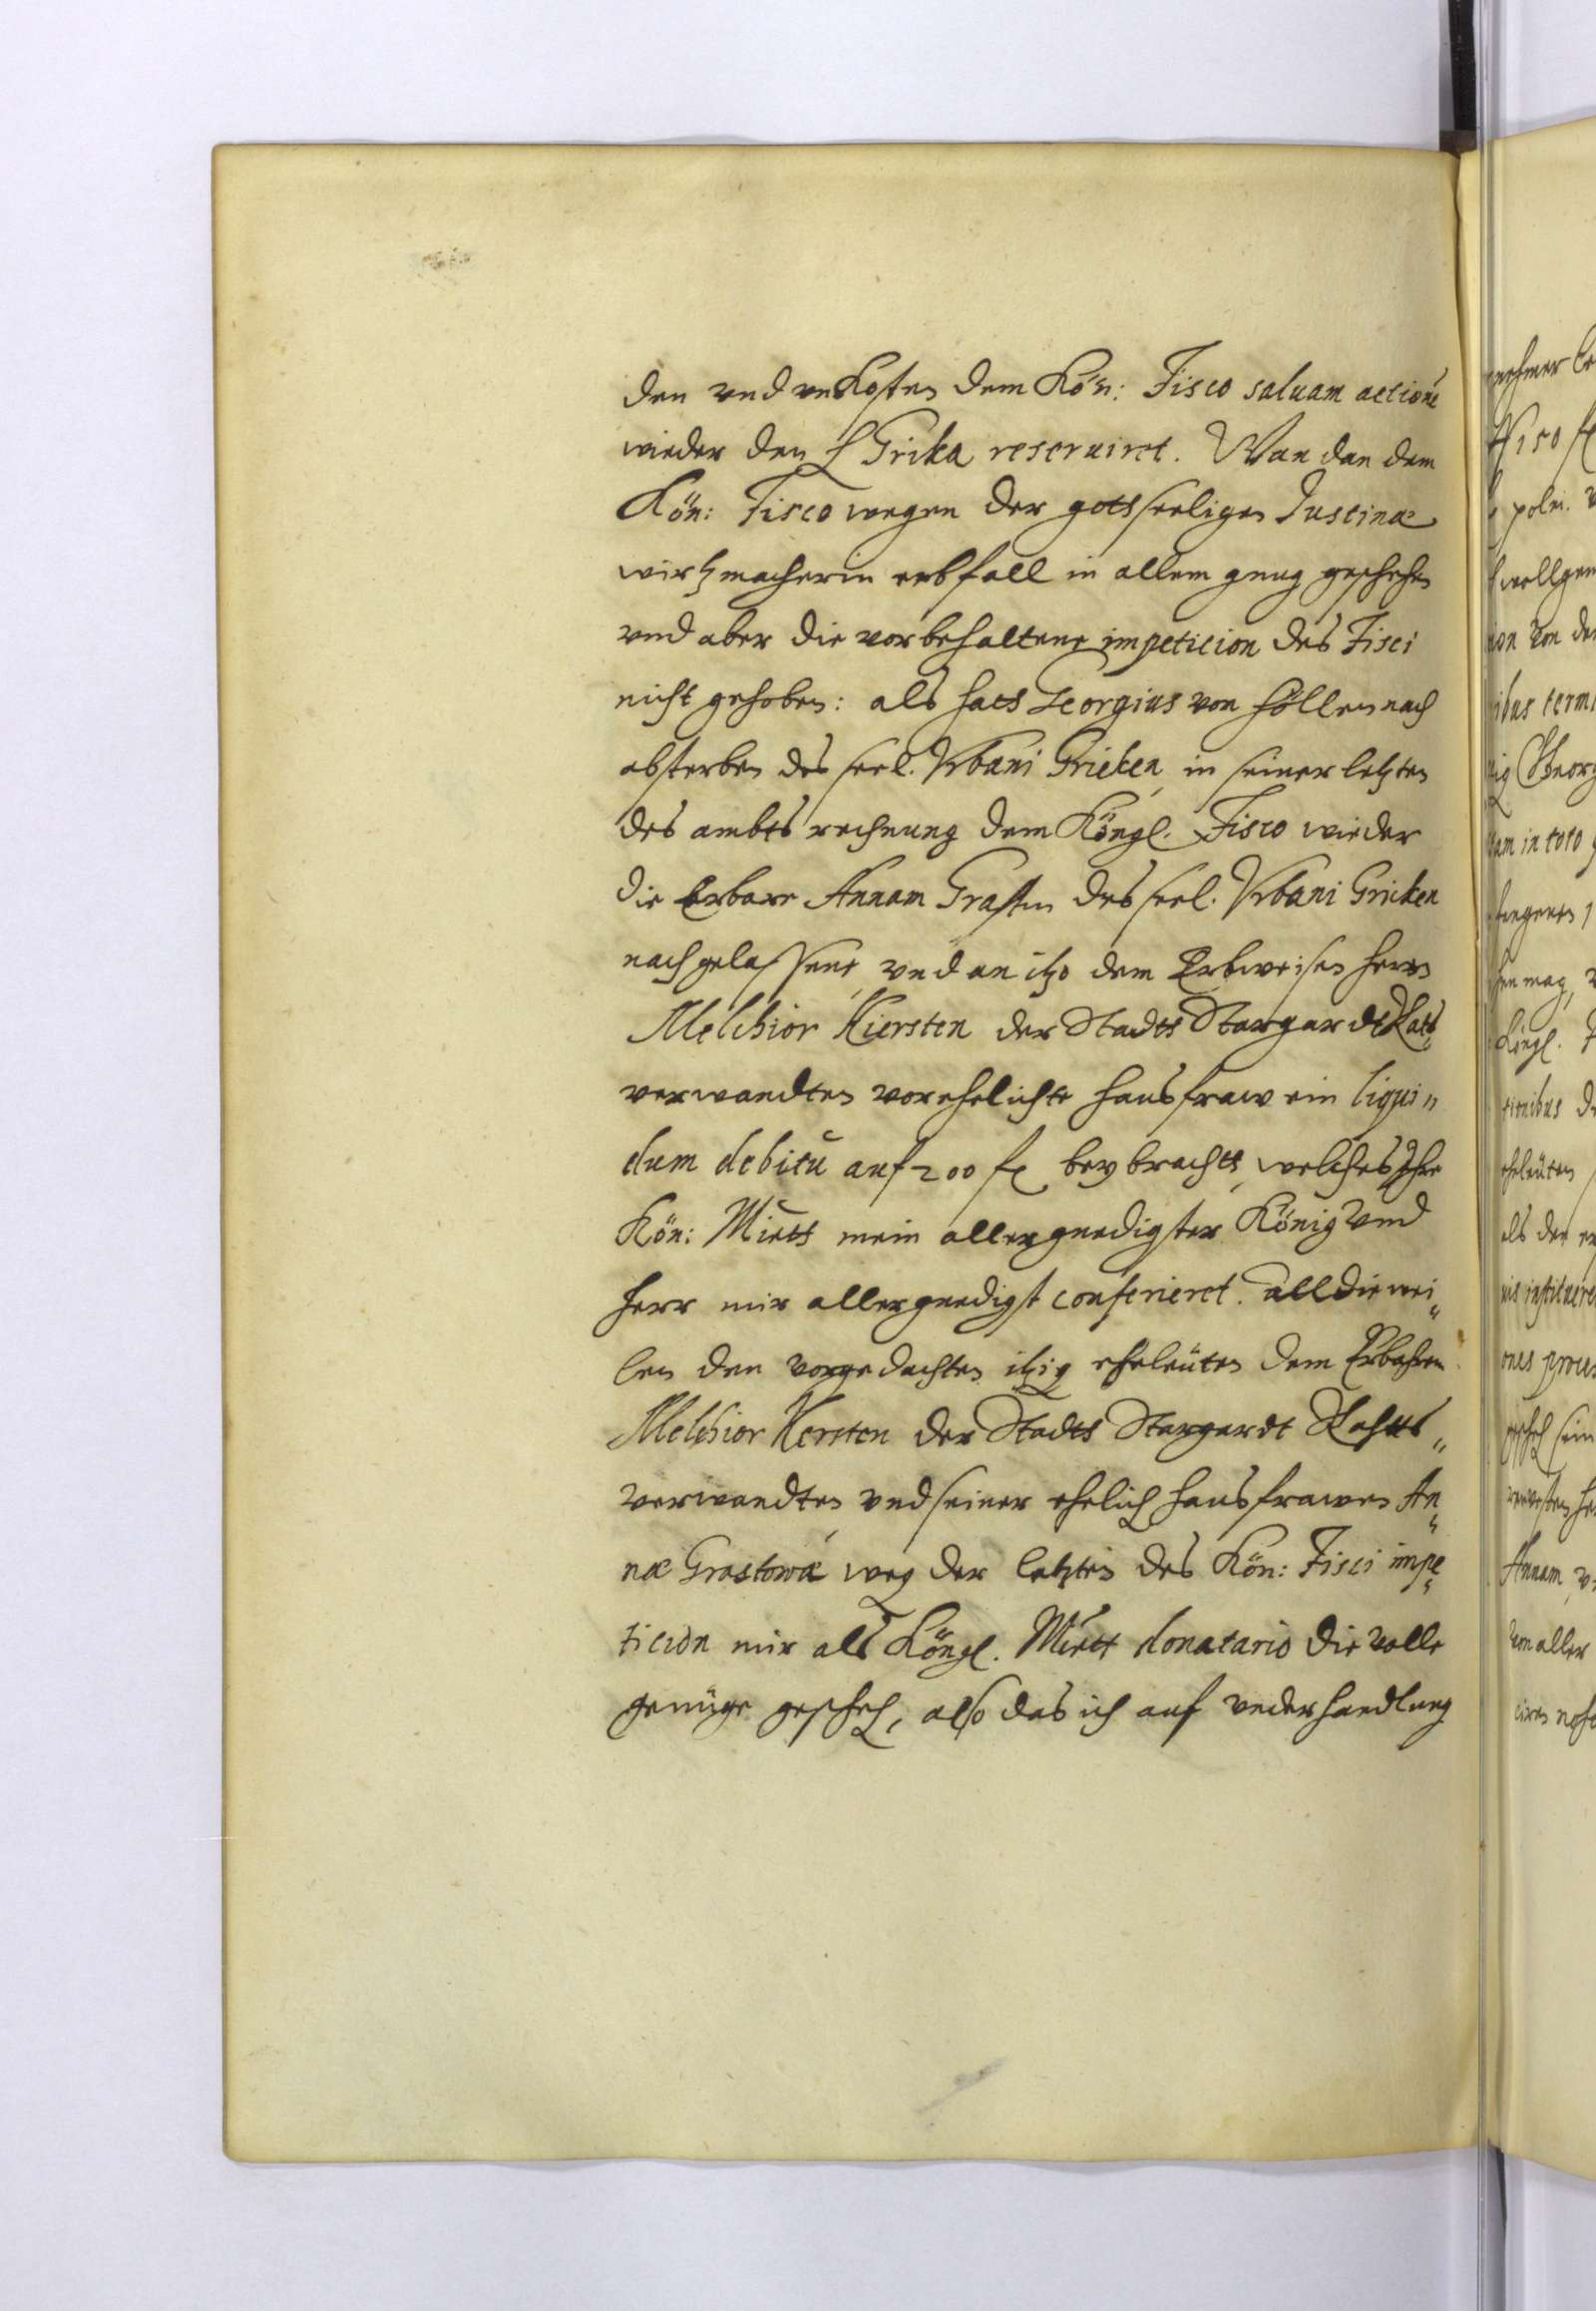 den vnd vnkosten dem Kön: Fisco saluam actionē
wieder den H Grika reseruiret. Wan dan dem
Kön: Fisco wegen der gottseeligen Justinæ
wirtzmacherin erbfall in allem gnug geschehen
vnd aber die vorbehaltene impeticion des Fisci
nicht gehoben: als hats Georgius von Höllen nach
absterben des seel. Vrbani Grieken, in seiner letzten
des ambts rechnung dem Köngl. Fisco wieder
die Erbare Annam Grasten des seel. Vrbani Gricken
nachgelassene, vnd an itzo dem Erbweisen Herrn
Melchior Kiersten der Stadts Stargardt Rats
verwandten vorehelichte hausfraw ein liqui"
dum debitū auf 200 fl beybrachts, welches Ihre
Kön: Mietts mein allergnedigster König vnd
Herr mir allergnedigst conferieret. alldiewei"
len den vorgedachten itzig eheleüten dem Erbahren
Melchior Kersten der Stadts Stargardt Rahtts"
verwandten, vnd seiner ehelich hausfrawen An"
næ Grastowæ weg der letzten des Kön: Fisci impe"
ticion mir als Köngl. Miett donatario die volle
genüge gescheh, also das ich auf vnderhandlung
nehmer
150 fl
poln.
wollgem
ion von der
ibus termi
itzig Georg
am in toto
en mag,
Köngl.
tionibus
eheleüten
als der
ones
gescheh sein
Annam,
von aller